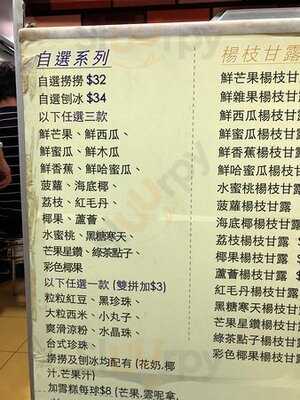 自選系列
自選撈撈 $32
自選刨冰 $34
以下任選三款
鮮芒果、鮮西瓜、
鮮蜜瓜、鮮木瓜
鮮香蕉、鮮哈蜜瓜、
菠蘿、海底椰、
荔枝、紅毛丹
椰果、蘆薈
水蜜桃、黑糖寒天、
芒果星鑽、綠茶點子、
彩色椰果
以下任選一款 (雙拼加$3)
粒粒紅豆、黑珍珠、
大粒西米、小丸子、
爽滑涼粉、水晶珠、
台式珍珠、
撈撈及刨冰均配有 (花奶,椰
汁,芒果汁)
加雪糕每球$8 (芒果,雲呢拿,
楊枝甘露
鮮芒果楊枝甘露
鮮雜果楊枝甘露
鮮西瓜楊枝甘露
鮮蜜瓜楊枝甘露
鮮香蕉楊枝甘露
鮮哈蜜瓜楊枝甘
水蜜桃楊枝甘露
菠蘿楊枝甘露
海底椰楊枝甘露
荔枝楊枝甘露 $
椰果楊枝甘露
蘆薈楊枝甘露 $
紅毛丹楊枝甘露
黑糖寒天楊枝甘
芒果星鑽楊枝甘
綠茶點子楊枝甘
彩色椰果楊枝甘